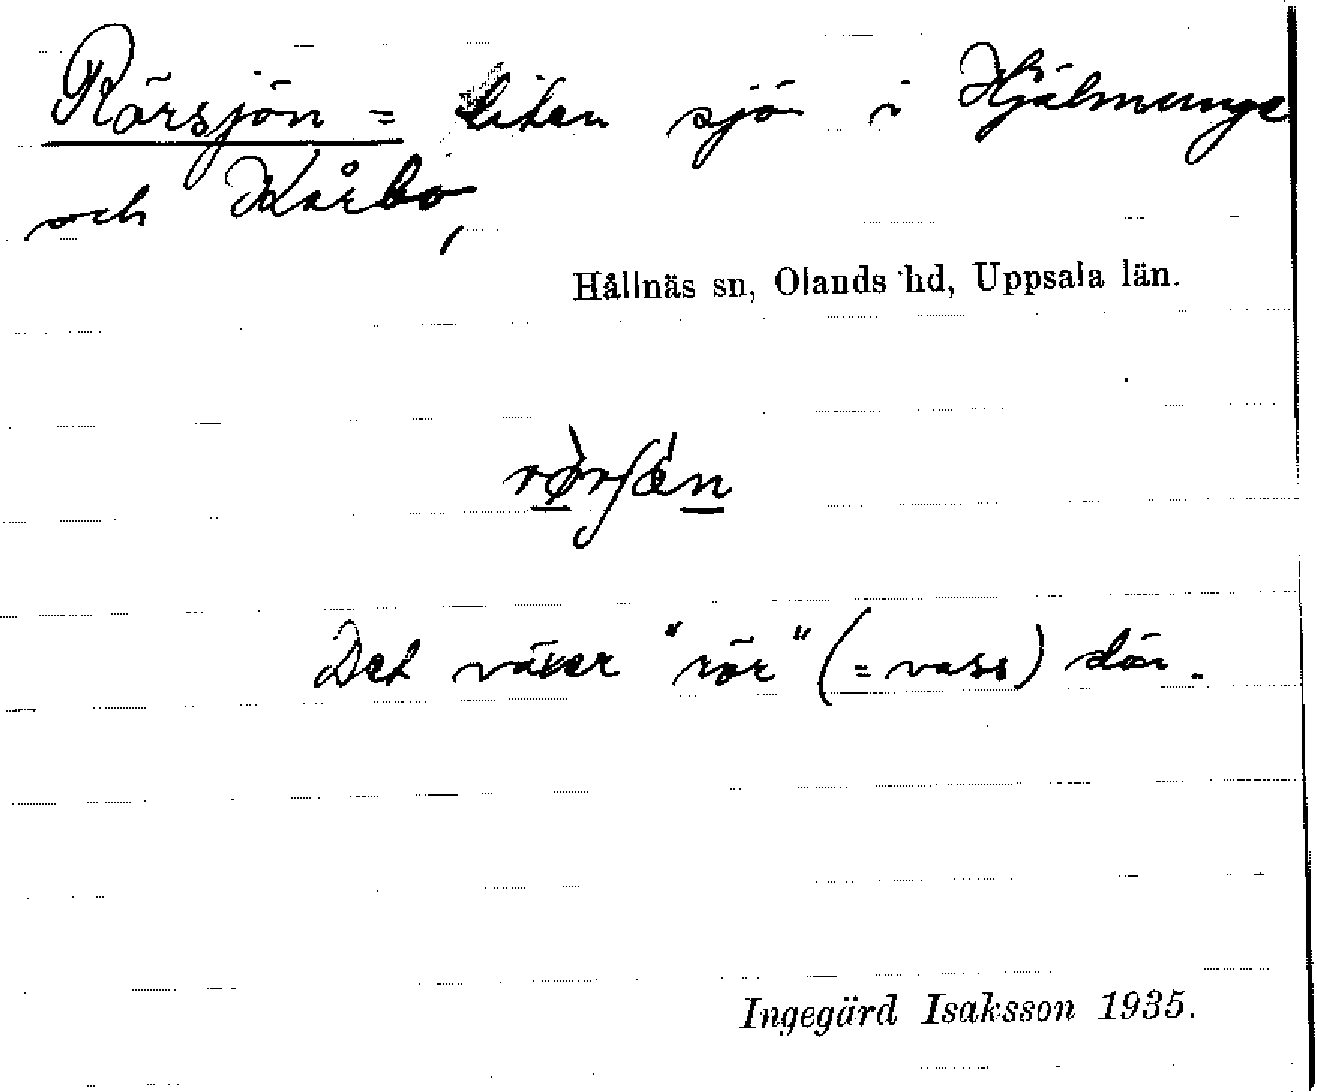 Rörsjön = liten sjö i Hjälmunge
och Kårbo,
Hållnäs sn, Olands hd, Uppsala län.
Det växer "rör" (= vass) där.
Ingegärd Isaksson 1935.